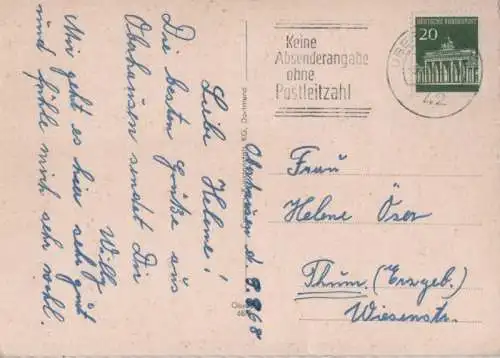 Oberhausen d. 9.8.68
Liebe Helene!
Die besten Grüße aus
Oberhausen sendet Dir
Willy
Mir geht es hier sehr gut
und fühle mich sehr wohl.
KG, Dortmund
Keine
Absenderangabe
ohne
Postleitzahl
42
DEUTSCHE BUNDESPOST
20
Frau
Helene Öser
Thum. (Erzgeb.)
Wiesenstr.